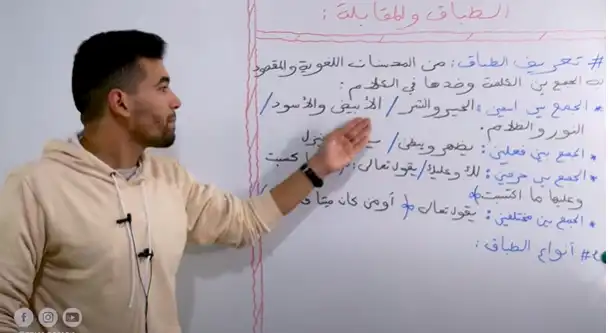 الطباق والمقابلة :
# تعريف الطباق: من المحسنات اللغوية والمقصود
به الجمع بين الكلمة وضدها في الكلام :
* الجمع بين اسمين : الخير والشر / الأبيض والأسود /
النور والظلام .
* الجمع بين فعلين : يظهر ويبطن / ينزل
* الجمع بين حرفين : لك وعليك / يقول تعالى : ما كسبت
وعليها ما اكتسبت
* الجمع بين مختلفين : يقول تعالى أو من كان ميتا
# أنواع الطباق :